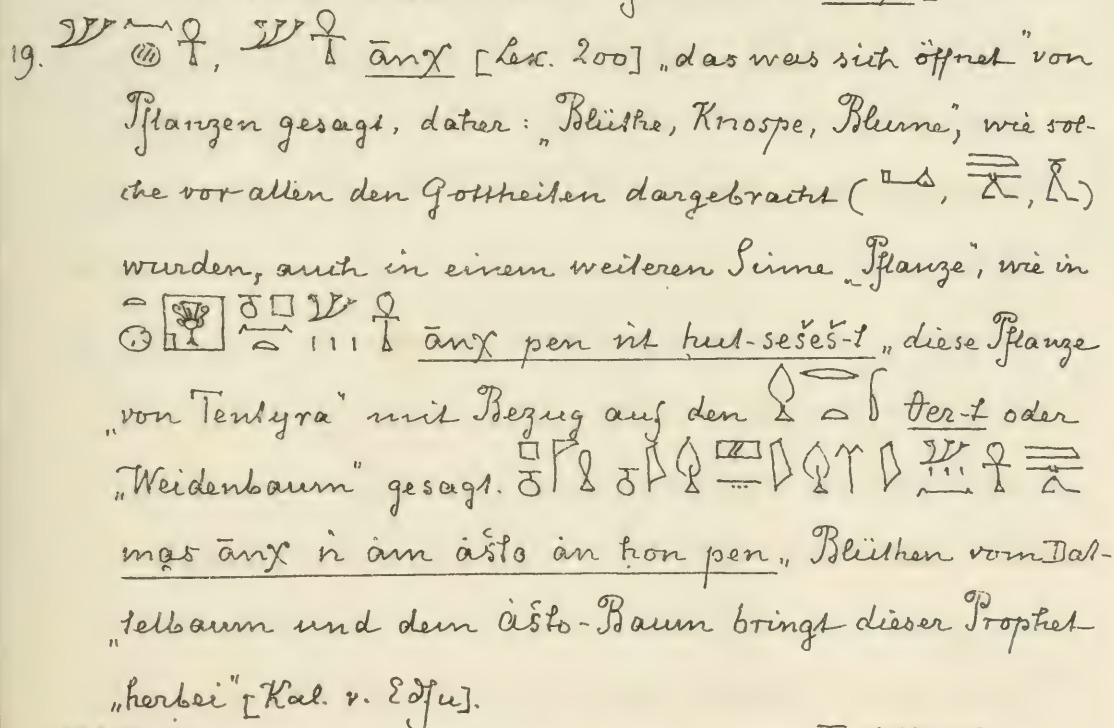 19. , ānχ [Lex. 200] „das was sich öffnet" von
Pflanzen gesagt, daher: „Blüthe, Knospe, Blume", wie sol-
che vor allen den Gottheiten dargebracht ( , , )
wurden, auch in einem weiteren Sinne „Pflanze", wie in
ānχ pen nt hut-sešeš-t „diese Pflanze
„von Tentyra" mit Bezug auf den ter-t oder
„Weidenbaum" gesagt.
mas ānχ n ȧm ȧšto ȧn hon pen „Blüthen vom Dat-
„telbaum und dem ȧšto-Baum bringt dieser Prophet
„herbei" [Kal. v. Edfu].